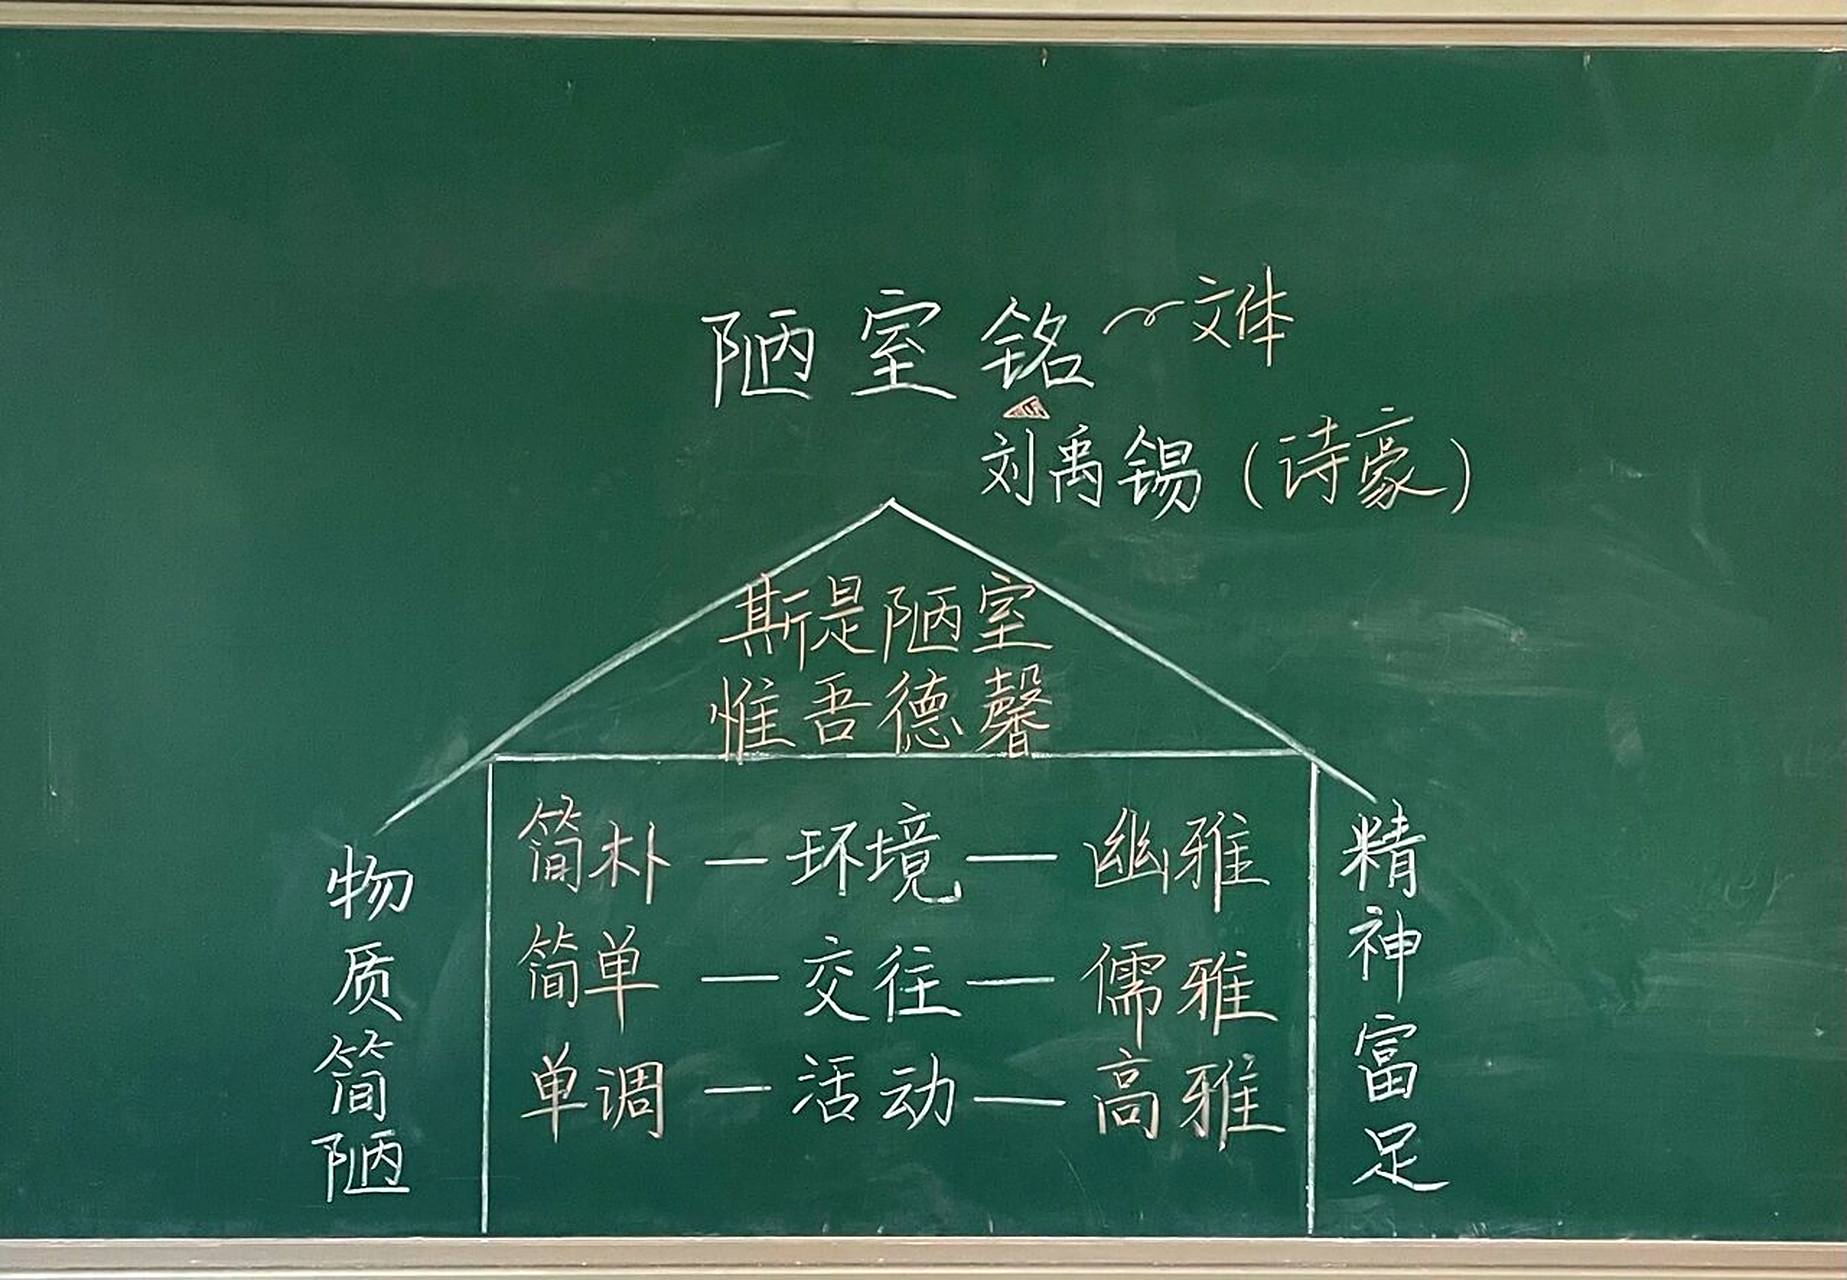 陋室铭 文体
刘禹锡（诗豪）
斯是陋室
惟吾德馨
物质简陋
简朴 — 环境 — 幽雅
简单 — 交往 — 儒雅
单调 — 活动 — 高雅
精神富足